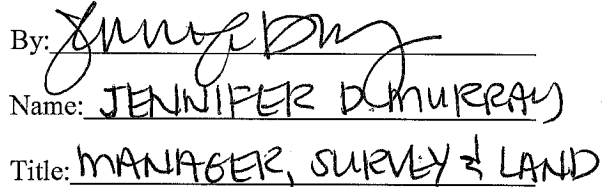 By:
Name: JENNIFER D. MURRAY
Title: MANAGER, SURVEY & LAND